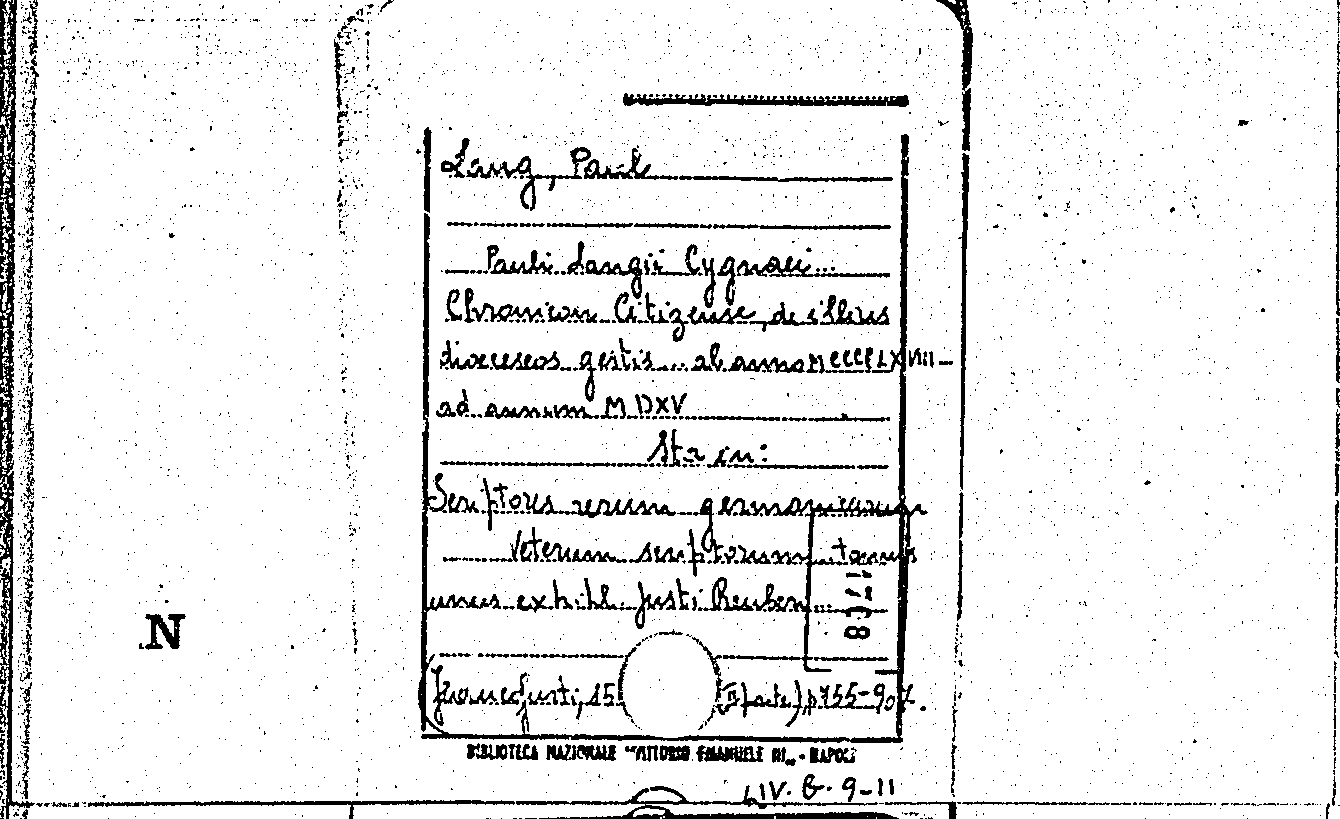 Lang, Paul
Pauli Langii Cygnaei...
Chronicon Citizense, de illius
dioeceseos gestis... ab anno MCCCCLXVIII
ad annum MDXV
Sta in:
Scriptores rerum germanicarum
Veterum scriptorum tomus
unus exhib. Justi Reuberi...
1708
N
Francofurti, 15 (II parte), p 755-907.
BIBLIOTECA NAZIONALE "VITTORIO EMANUELE III„ - NAPOLI
LIV. B. 9-11